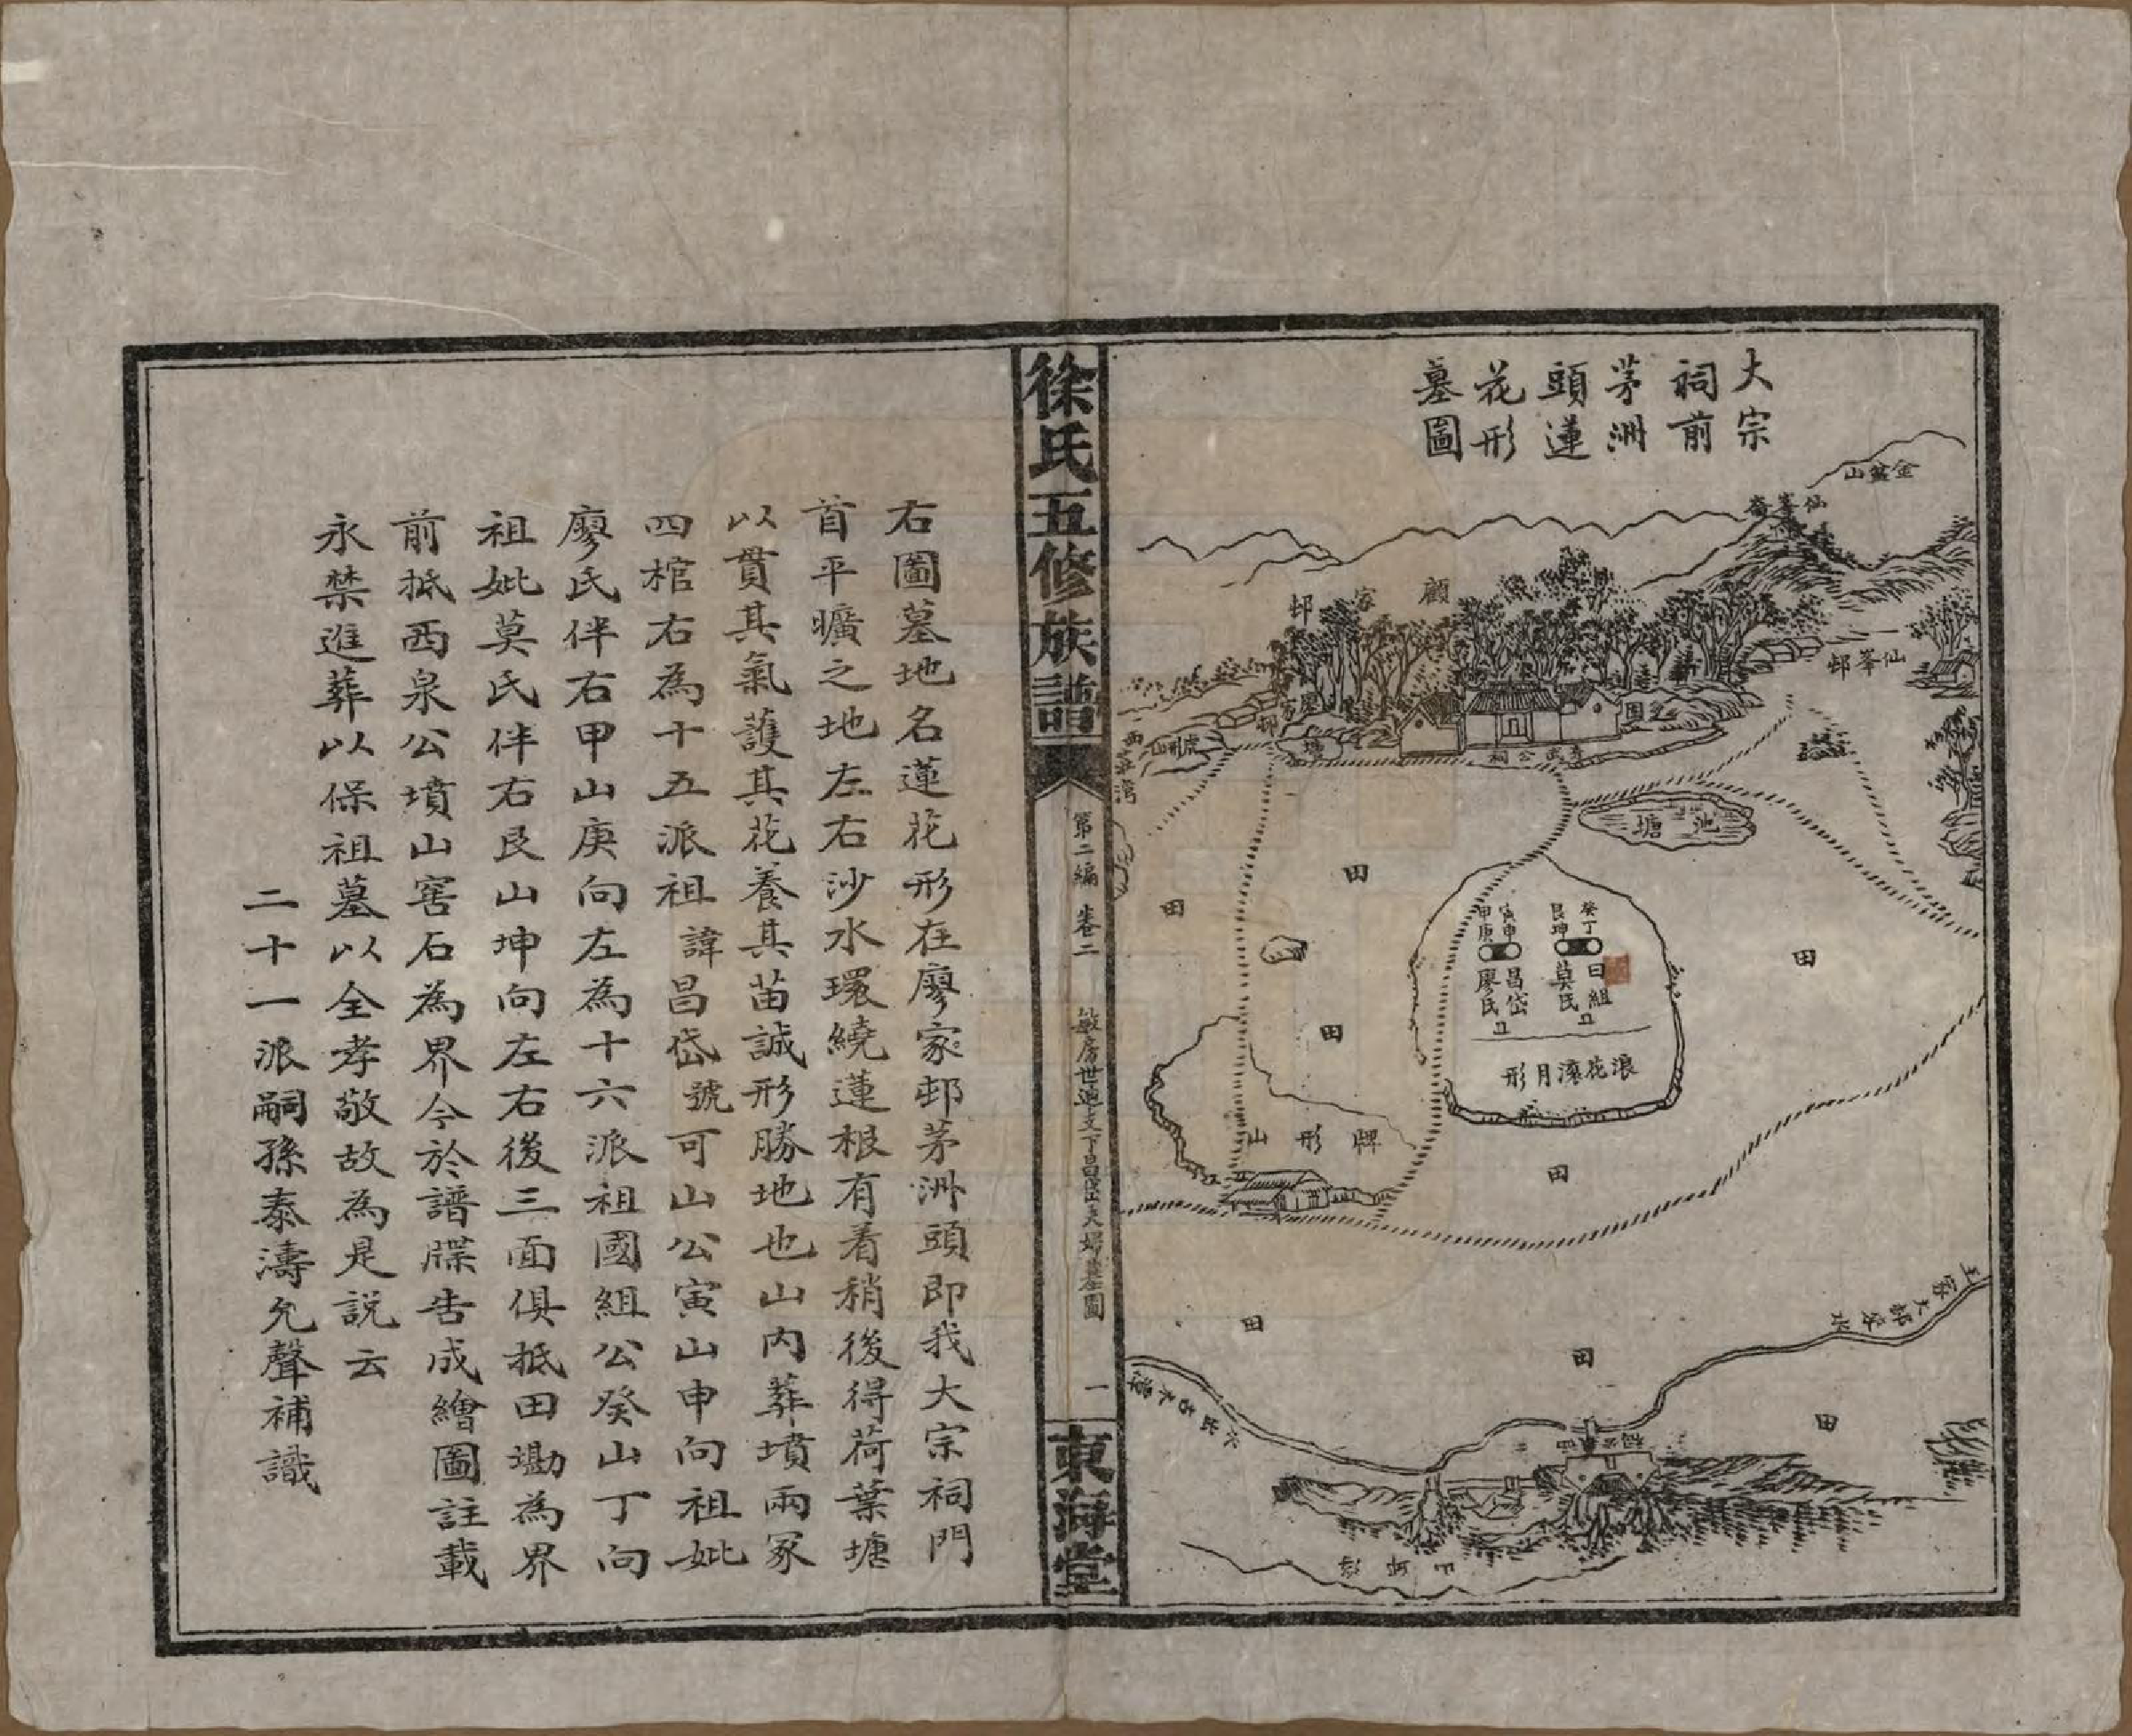 大宗
祠前
茅洲
頭蓮
花形
墓圖
金盆山
仙峯
顧家邨
仙峯邨
廖家邨
虎形山
塘
公祠
園
池塘
田
田
田
田
田
田
田
田
癸丁
艮坤
寅申
甲庚
國組
莫氏
昌岱
廖氏
浪花滚月形
牌形山
徐氏五修族譜
第二編 卷二
敏房世迪支下昌岱夫婦墓圖
一
東海堂
右圖墓地名蓮花形在廖家邨茅洲頭即我大宗祠門
首平曠之地左右沙水環繞蓮根有着稍後得荷葉塘
以貫其氣護其花養其苗誠形勝地也山內葬墳兩冢
四棺右為十五派祖諱昌岱號可山公寅山申向祖妣
廖氏伴右甲山庚向左為十六派祖國組公癸山丁向
祖妣莫氏伴右艮山坤向左右後三面俱抵田墈為界
前抵西泉公墳山窖石為界今於譜牒告成繪圖註載
永禁進葬以保祖墓以全孝敬故為是説云
二十一派嗣孫泰濤允聲補識